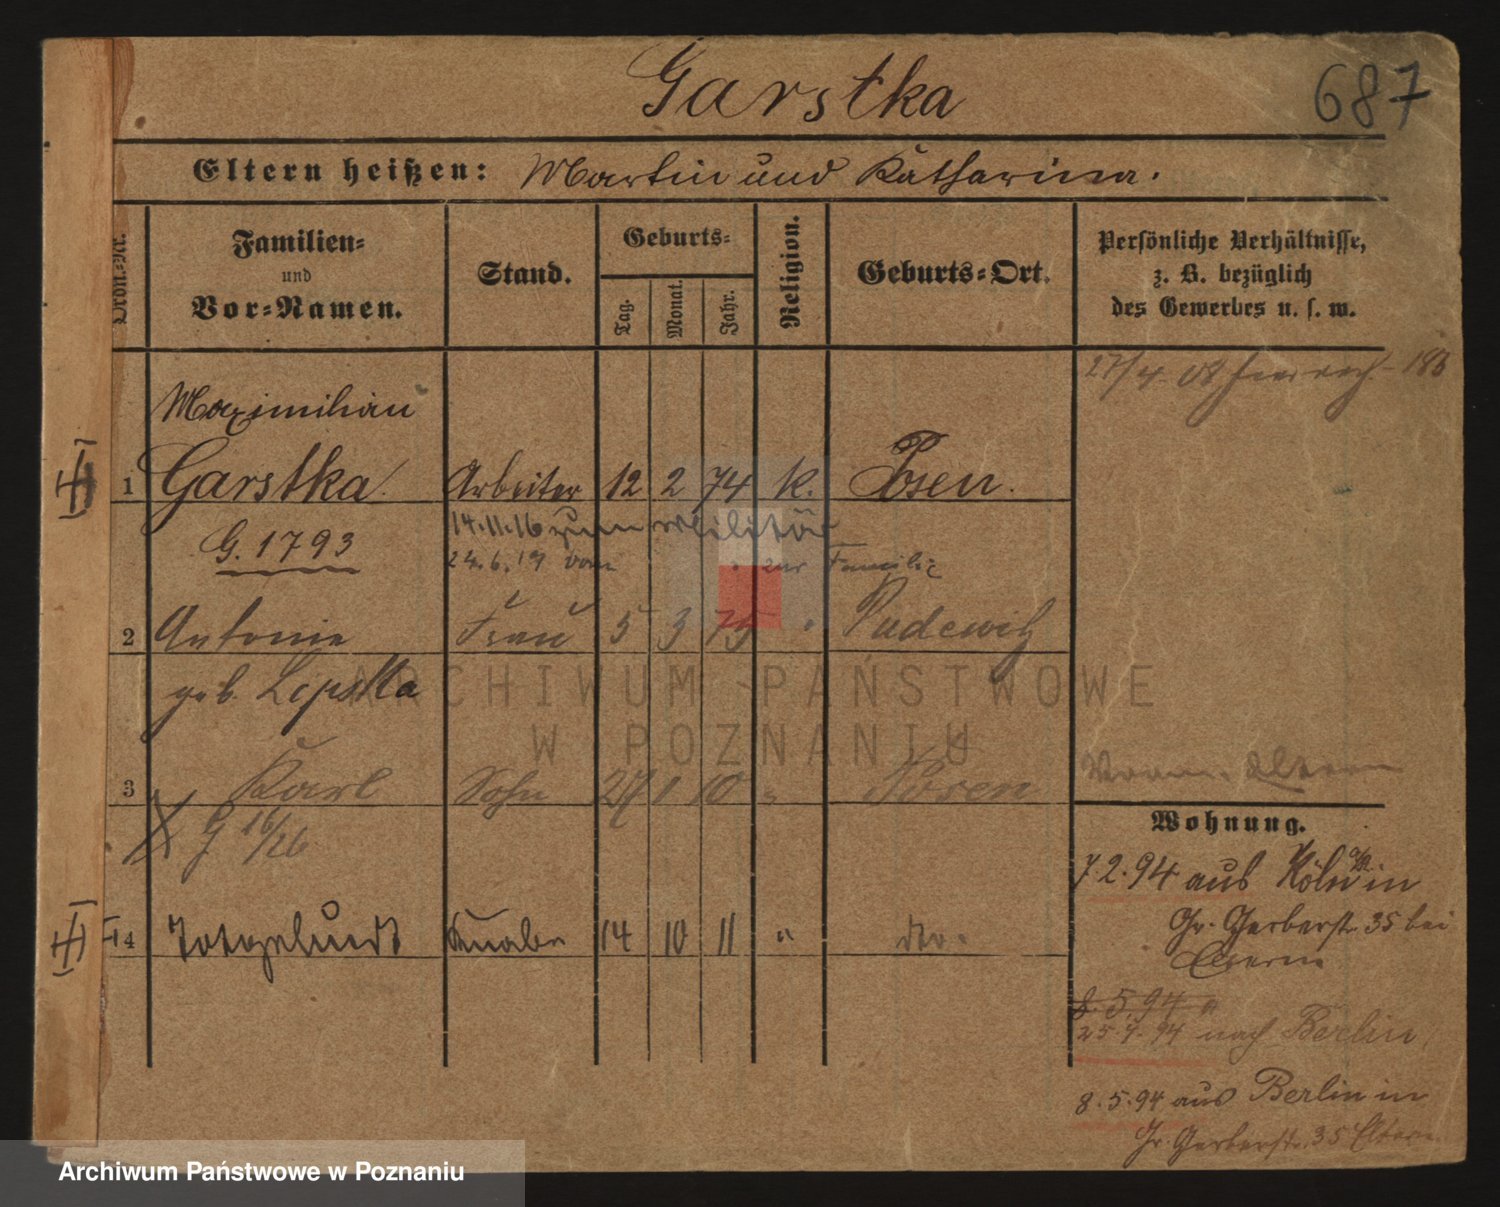 Garstka
687
Eltern heißen: Martin und Katharina.
Ordn.-Nr.
Familien-
und
Vor-Namen.
Stand.
Geburts-
Tag.
Monat.
Jahr.
Religion.
Geburts-Ort.
Persönliche Verhältnisse,
z. B. bezüglich
des Gewerbes u. s. w.
27/4 08
Maximilian
1 Garstka. Arbeiter 12 2 74 k. Posen.
G. 1793
14.11.16 zum Militär
24.6.19 vom " zur Familie
2 Antonie Frau 5 3 75 " Pudewitz
geb. Lepska
3 Karl Sohn 27 1 10 " Posen
G 16/26
4 Totgeburt Knabe 14 10 11 " dto.
Wohnung.
7.2.94 aus Köln a/R. in
Gr. Gerberstr. 35 bei
Eltern
8.5.94 "
25.4.94 nach Berlin
8.5.94 aus Berlin in
Gr. Gerberstr. 35 Eltern
ARCHIWUM PAŃSTWOWE
W POZNANIU
Archiwum Państwowe w Poznaniu